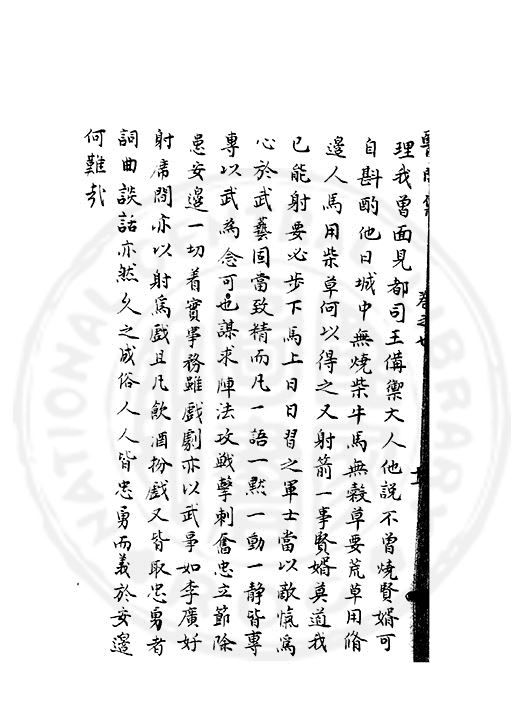 理我曾面見都司王備禦大人他說不曾燒賢婿可
自斟酌他日城中無燒柴牛馬無穀草要荒草用脩
邊人馬用柴草何以得之又射箭一事賢婿莫道我
已能射要必步下馬上日日習之軍士當以敵愾為
心於武藝固當致精而凡一語一默一動一靜皆專
專以武為念可也謀求陣法攻戰擊刺奮忠立節除
患安邊一切着實事務雖戲劇亦以武事如李廣好
射席間亦以射為戲且凡飲酒扮戲又皆取忠勇者
詞曲談話亦然久之成俗人人皆忠勇而義於安邊
何難哉